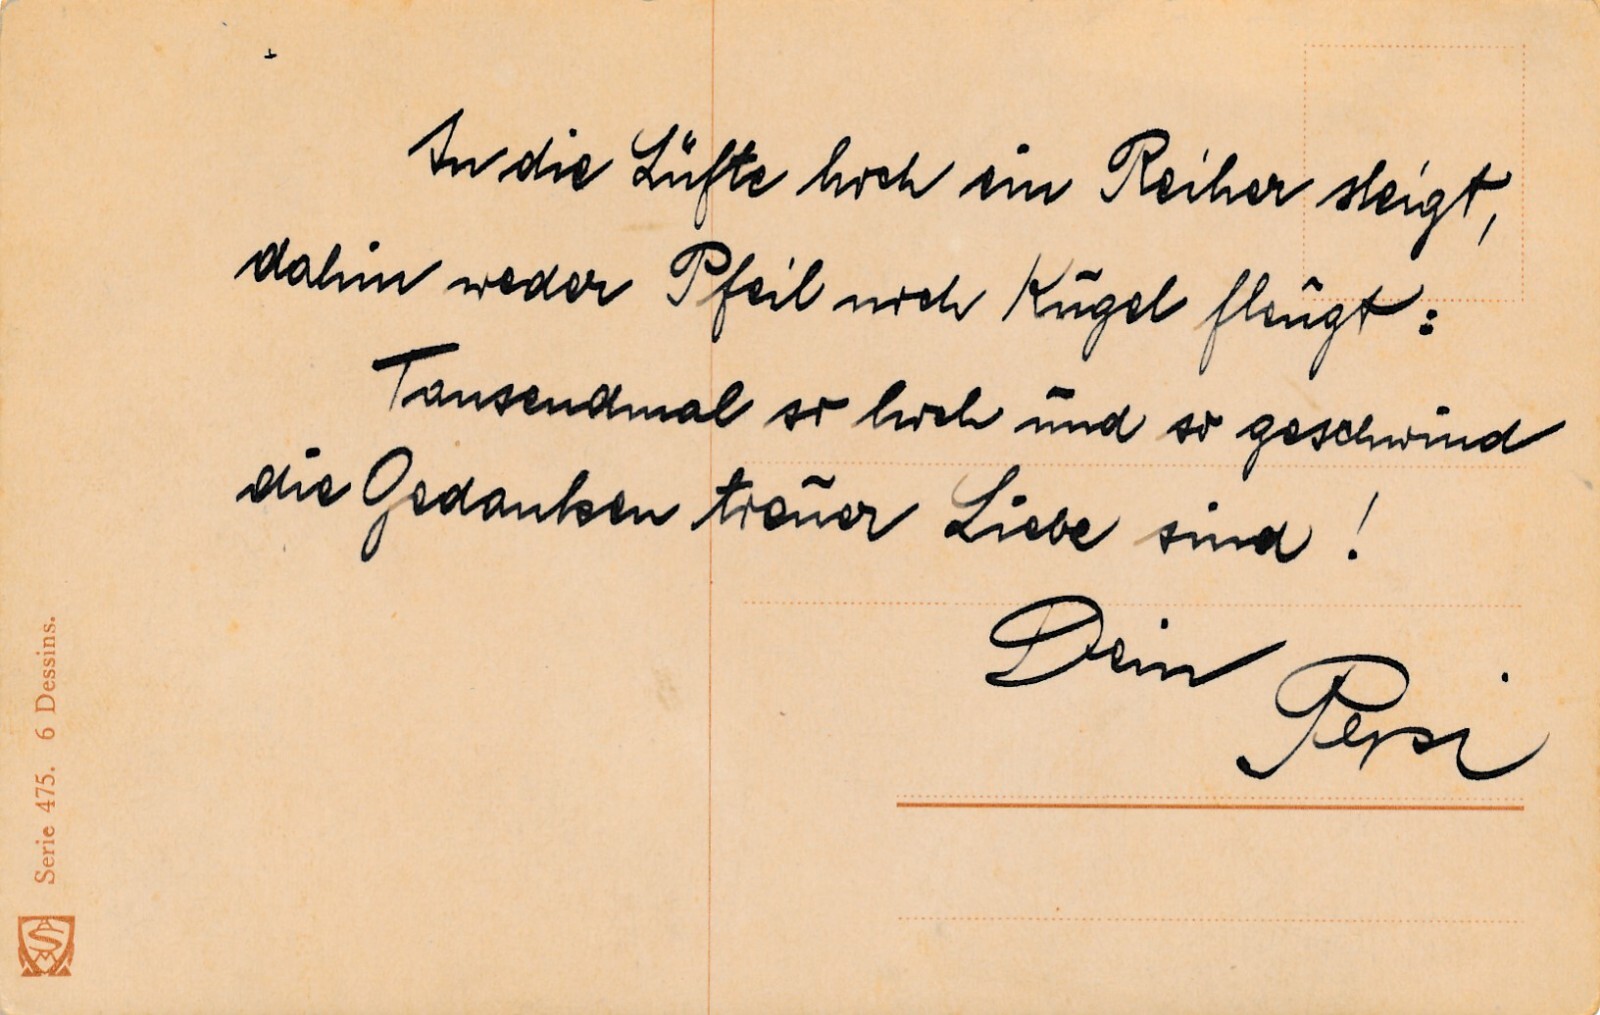 In die Lüfte hoch ein Reiher steigt,
dahin weder Pfeil noch Kugel fleugt:
Tausendmal so hoch und so geschwind
die Gedanken treuer Liebe sind!
Dein
Pepi
Serie 475. 6 Dessins.